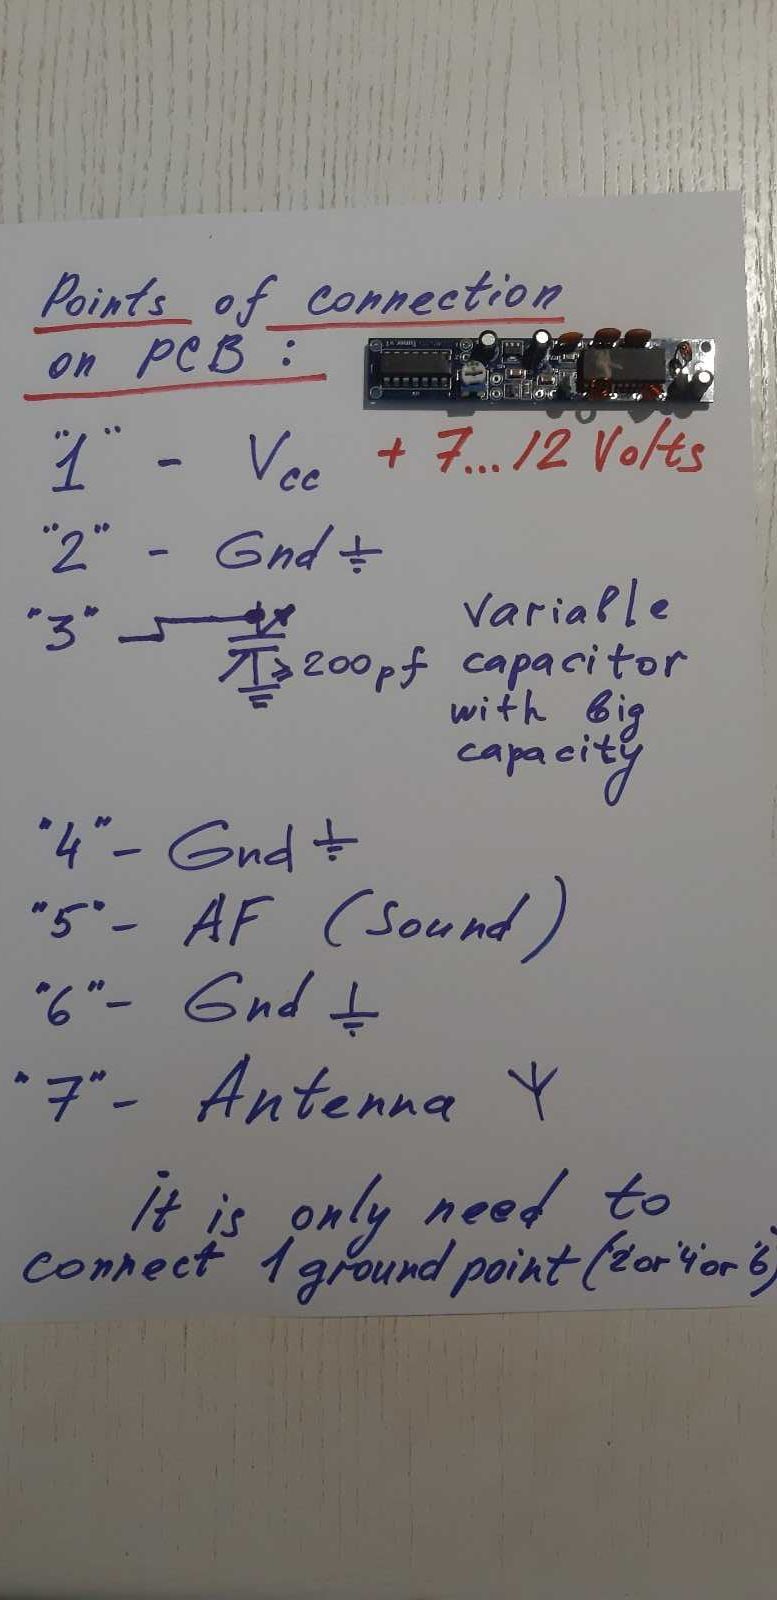 Points of connection
on PCB :
"1" - Vcc + 7...12 Volts
"2" - Gnd
"3" ≥200pf variable
capacitor
with big
capacity
"4" - Gnd
"5" - AF (Sound)
"6" - Gnd
"7" - Antenna
it is only need to
connect 1 ground point ('2' or '4' or '6')